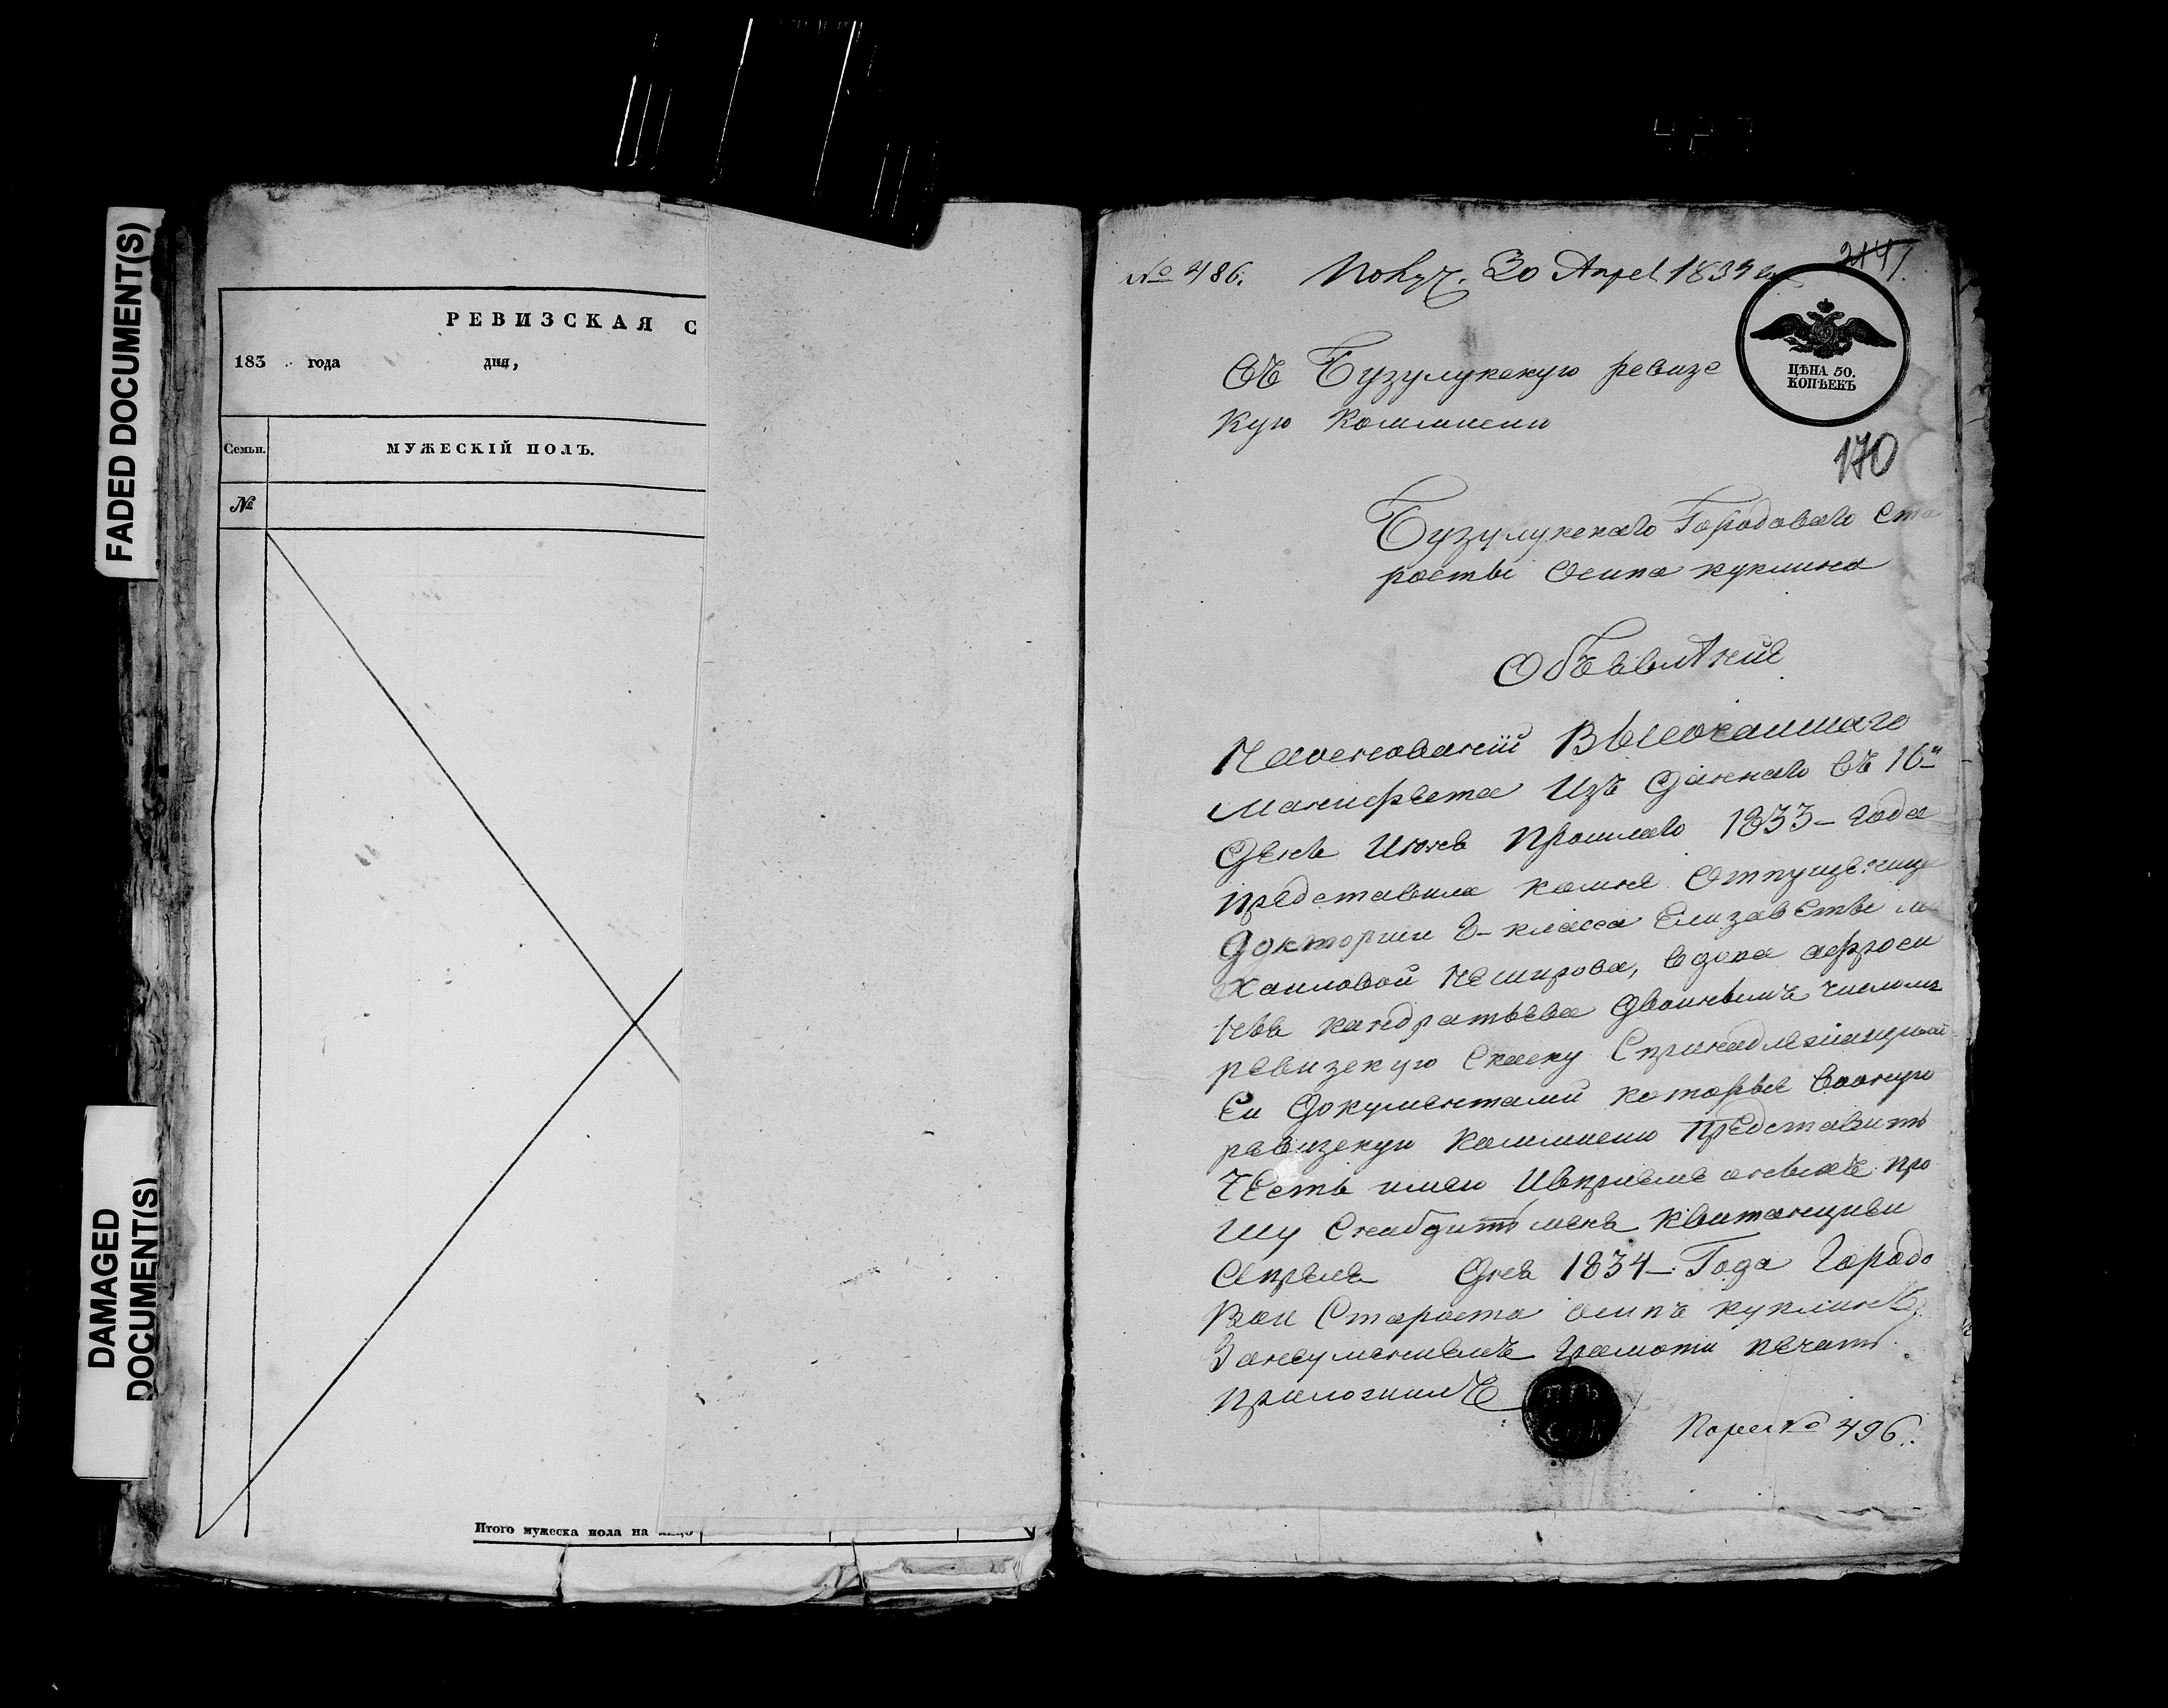 FADED DOCUMENT(S)
DAMAGED
DOCUMENT(S)
РЕВИЗСКАЯ С
183 года дня,
Семьи.
МУЖЕСКІЙ ПОЛЪ.
№
Итого мужеска пола на лицо
№ 486. Получ. 30 Апрел 1834 го
ЦѢНА 50.
КОПѢЕКЪ
170
Въ Бузулукскую ревизс
кую Коммисию
Бузулукскаго Городоваго Ста
росты Осипа куклина
Объявление
Наосновании Высочаишаго
манифеста Изъ Даннаго въ 16й
День Июня Прошлаго 1833 - года
представила комне Отпущенница
Докторши 8 - класса Елизаветы ми
хаиловой вдова афроси
нья кандратьева Двоинымъ числомъ
ревизскую Скаску Спринадлежащими
Еи Документами которые Вооную
ревизскую Коммисию Представить
Честь имею Ивприеме оныхъ про
шу Снабдить меня Квитанциеи
Апреля Дня 1834 - Года Городо
вои Староста осипъ куклинъ
Занеумениемъ Грамоты печать
приложилъ
Порег № 496.